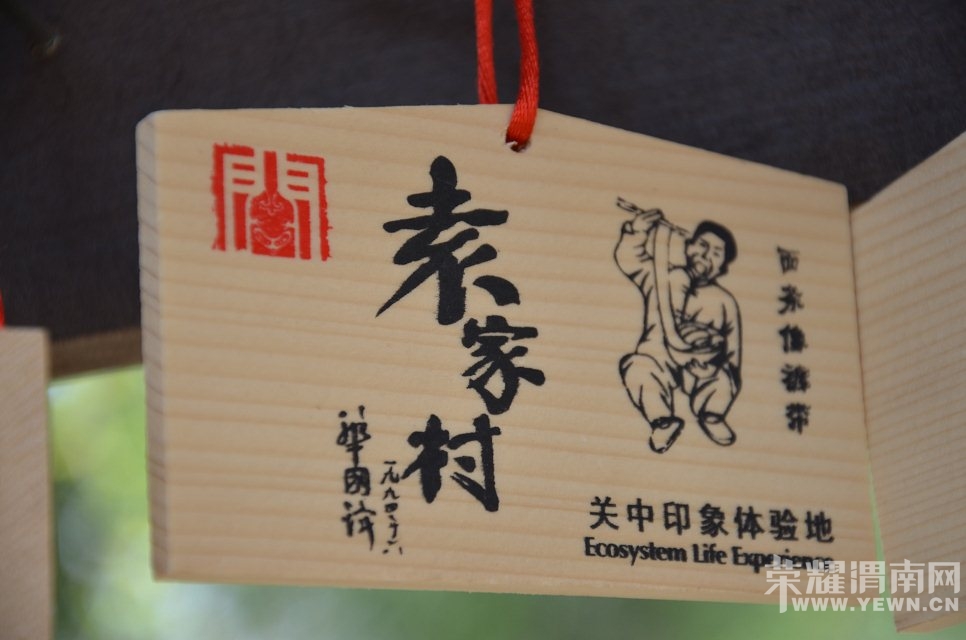 袁家村
華國鋒
一九九四
面条像裤带
关中印象体验地
Ecosystem Life Experience
荣耀渭南网
WWW.YEWN.CN